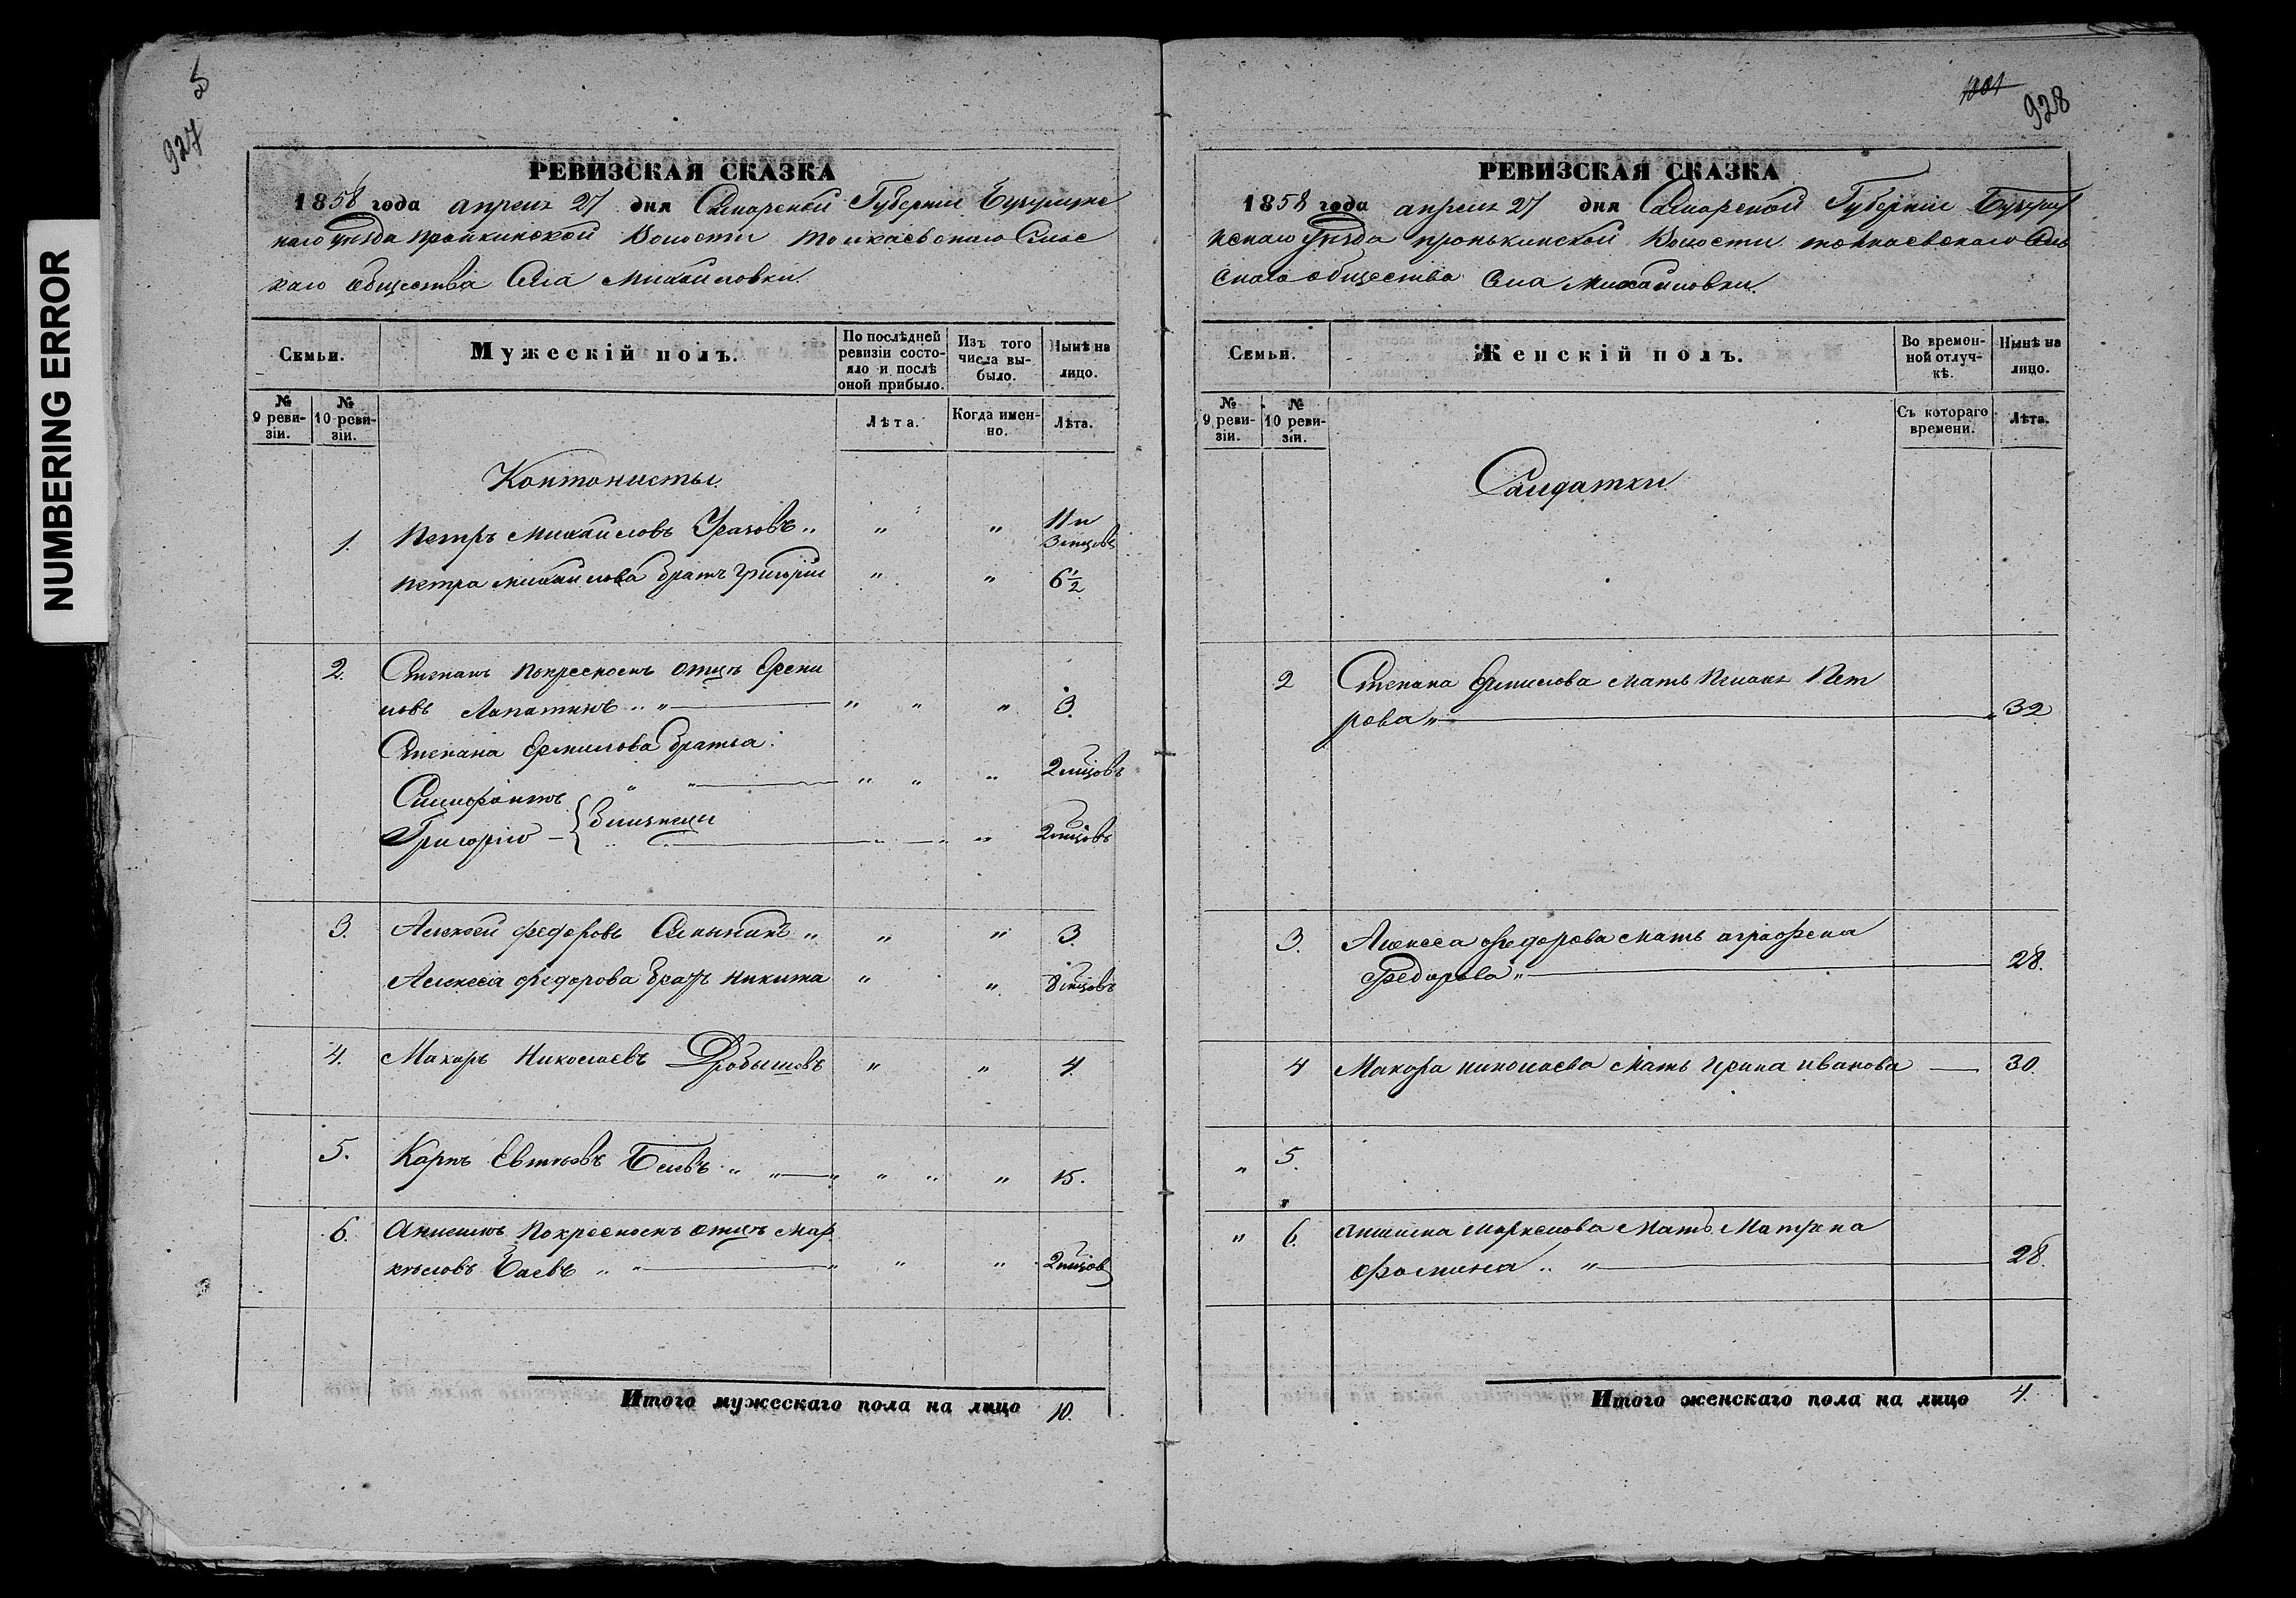 NUMBERING ERROR
5
927
РЕВИЗСКАЯ СКАЗКА
1858 года апреля 27 дня Самарской Губернии Бузулукс
каго уѣзда Пронкинской Волости Толкаевскаго Сельс
каго общества Села Михайловки.
Семьи.
Мужескій полъ.
По послѣдней ревизіи состояло и послѣ оной прибыло.
Изъ того числа выбыло.
Нынѣ на лицо.
№ 9 ревизіи.
№ 10 ревизіи.
Лѣта.
Когда именно.
Лѣта.
Контонисты.
1. Петръ Михайловъ " " 11 и 3 мцовъ
Петра Михайлова братъ Григорій " " 6 1/2
2. Степанъ покрестномъ отцѣ Ерми
ловъ Лапатинъ " " " " 3.
Степана Ермилова братья:
" " " " 2 мцовъ
Григорій { близнецы " " 2 мцовъ
3. Алексей Федоровъ " " " 3.
Алексея Федорова братъ Никита " " 8 мцовъ
4. Макаръ Николаевъ Дробышовъ " " 4.
5. Карпъ " " " " " 15.
6. Анисимъ покрестномъ отцѣ Мар
кѣловъ Баевъ " " " " " 2 мцов
Итого мужескаго пола на лицо 10.
1001
928
РЕВИЗСКАЯ СКАЗКА
1858 года апреля 27 дня Самарской Губерніи Бузулу
кскаго уѣзда Пронькинской Волости Толкаевскаго Сель
скаго общества Села Михайловки.
Семьи.
Женскій полъ.
Во временной отлучкѣ.
Нынѣ на лицо.
№ 9 ревизіи.
№ 10 ревизіи.
Съ котораго времени.
Лѣта.
Салдатки.
2 Степана Ермилова мать Пет
рова " 32
3. Алексея Федорова мать Аграфена
Федорова " 28.
4 Макара Николаева мать Ирина Иванова 30.
" 5.
" 6. Анисима Маркелова мать Матрена
Фомина " " 28.
Итого женскаго пола на лицо 4.